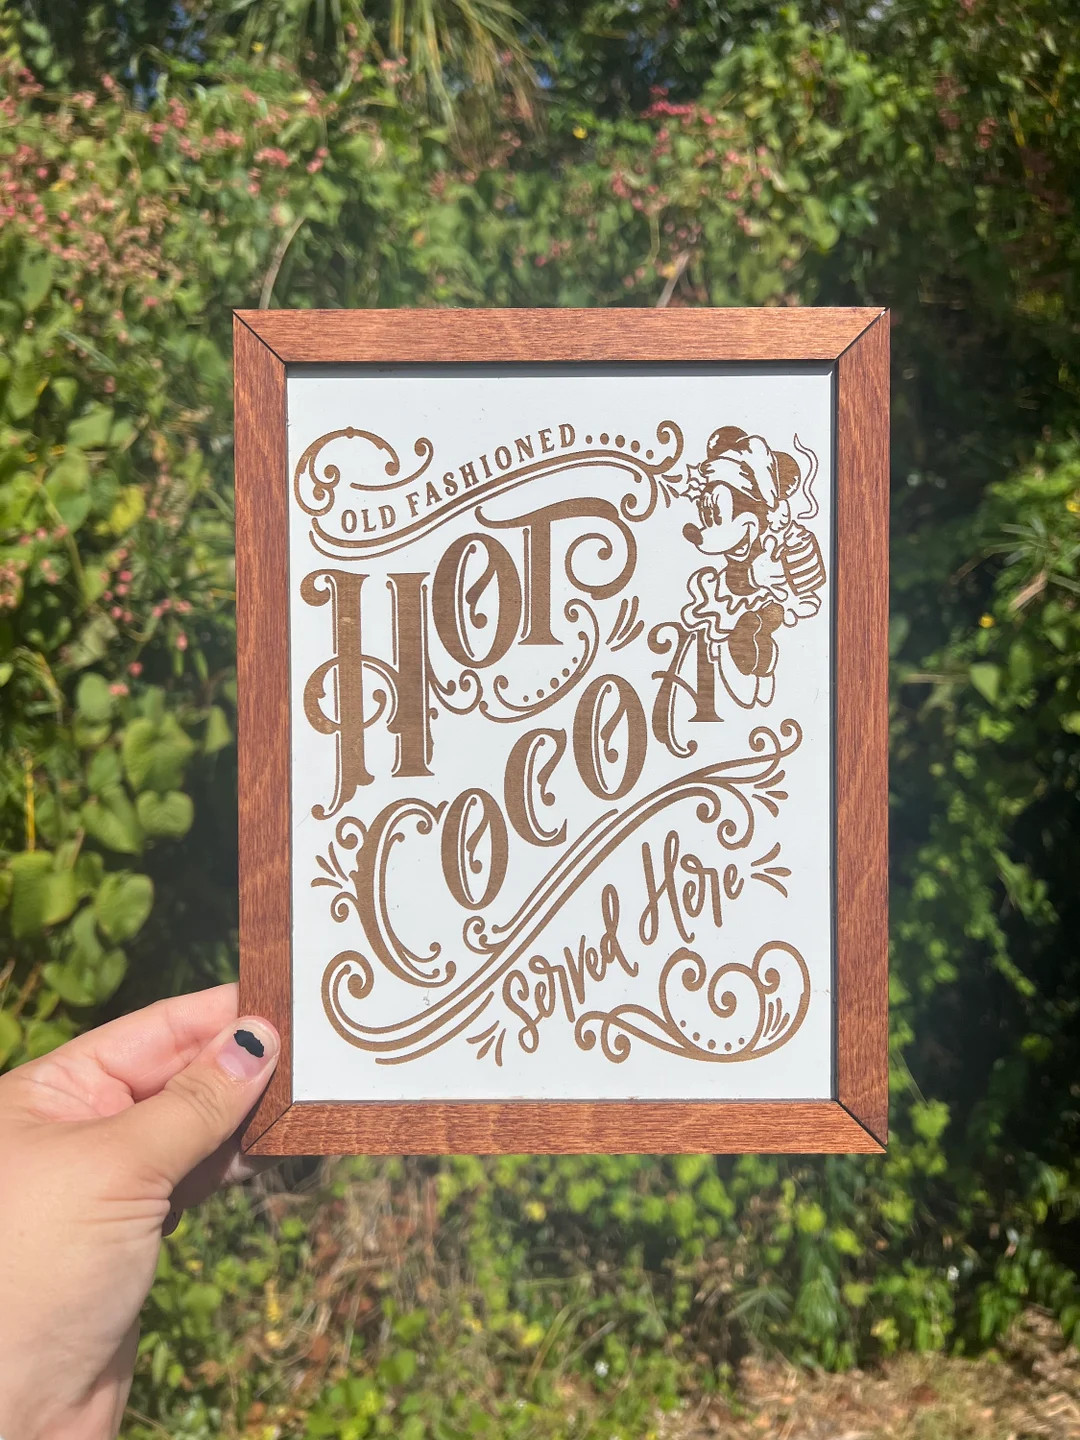 OLD FASHIONED
HOT
COCOA
Served Here